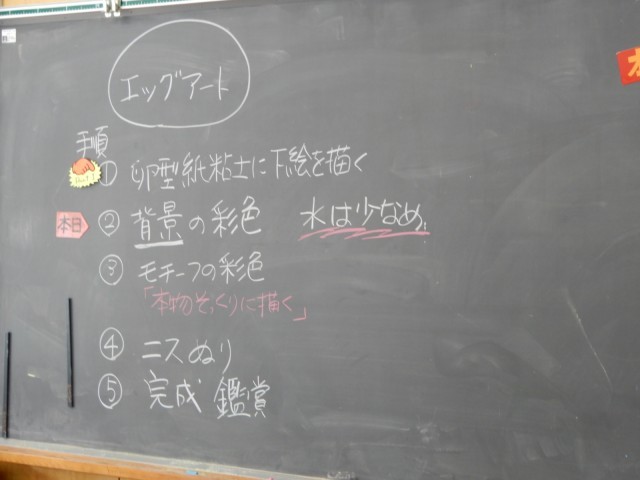 エッグアート
手順
① 卵型紙粘土に下絵を描く
本日 ② 背景の彩色 水は少なめ。
③ モチーフの彩色
「本物そっくりに描く」
④ ニスぬり
⑤ 完成 鑑賞